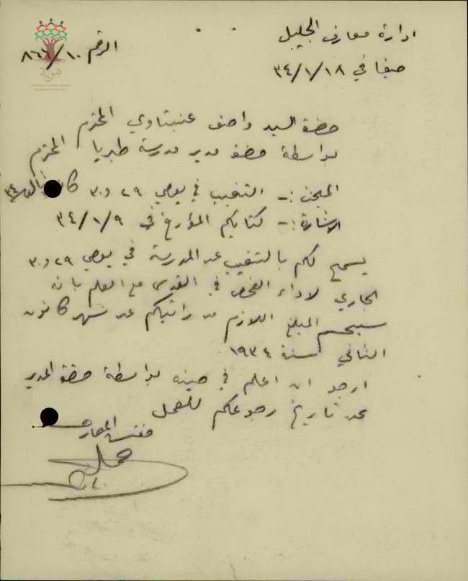 ادارة معارف الجليل
الرقم ١٠/
صفا في ٣٤/١/١٨
حضرة السيد واصف عنبتاوي المحترم
بواسطة حضرة مدير مدرسة طبريا المحترم
المبحث :- التغيب في يومي ٢٩ و٣٠ ك
الاشارة :- كتابكم المؤرخ في ٣٤/١/٩
يسمح لكم بالتغيب عن المدرسة في يومي ٢٩ و٣٠
الجاري لاداء الفحص في القدس مع العلم بانه
سيحسم المبلغ اللازم من راتبكم عن شهر كانون
الثاني سنة ١٩٣٤
ارجو ان اعلم في حينه بواسطة حضرة المدير
عن تاريخ رجوعكم للعمل
مفتش المعارف